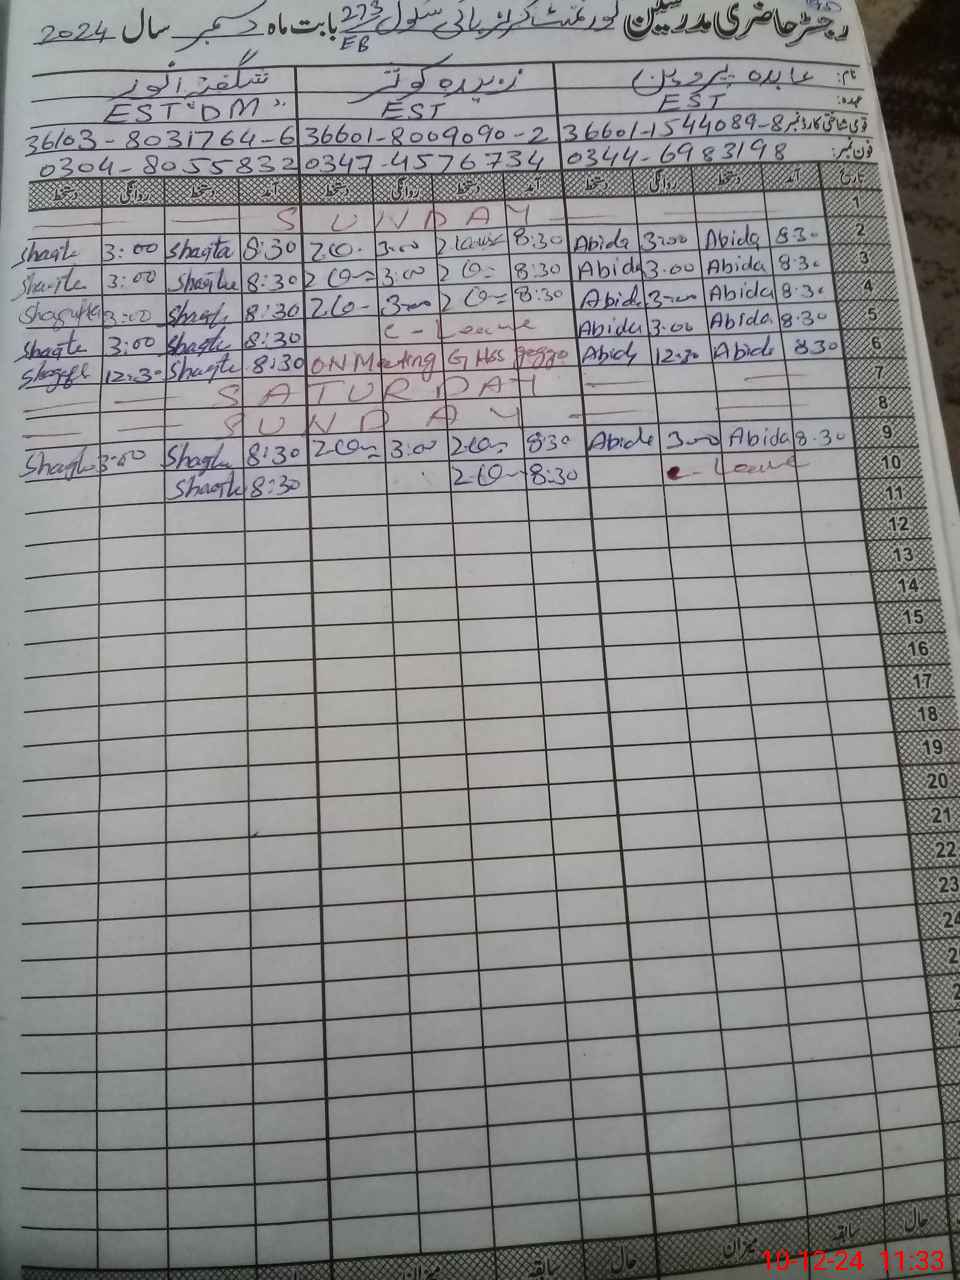 رجسٹر حاضری مدرسین گورنمنٹ گرلز ہائی سکول 273 EB بابت ماہ دسمبر سال 2024
نام: عابدہ پروین زبیدہ کوثر شگفتہ انور
عہدہ: EST EST EST "DM"
قومی شناختی کارڈ نمبر 36601-1544089-8 36601-8009090-2 36103-8031764-6
فون نمبر: 0344-6983198 0347-4576734 0304-8055832
تاریخ آمد دستخط روانگی دستخط آمد دستخط روانگی دستخط آمد دستخط روانگی دستخط
SUNDAY 1
3:00 Shagta 8:30 3:00 8:30 Abida 3:00 Abida 8:30 2
3:00 8:30 3:00 8:30 Abida 3:00 Abida 8:30 3
Shagufta 3:00 8:30 3:00 8:30 Abida 3:00 Abida 8:30 4
3:00 8:30 C-Leave Abida 3:00 Abida 8:30 5
12:30 8:30 ON Meeting GHSS Abida 12:30 Abida 8:30 6
SATURDAY 7
SUNDAY 8
3:00 8:30 3:00 8:30 Abida 3:00 Abida 8:30 9
8:30 8:30 C-Leave 10
11
12
13
14
15
16
17
18
19
20
21
22
23
حال سابقہ میزان حال سابقہ میزان
10-12-24 11:33